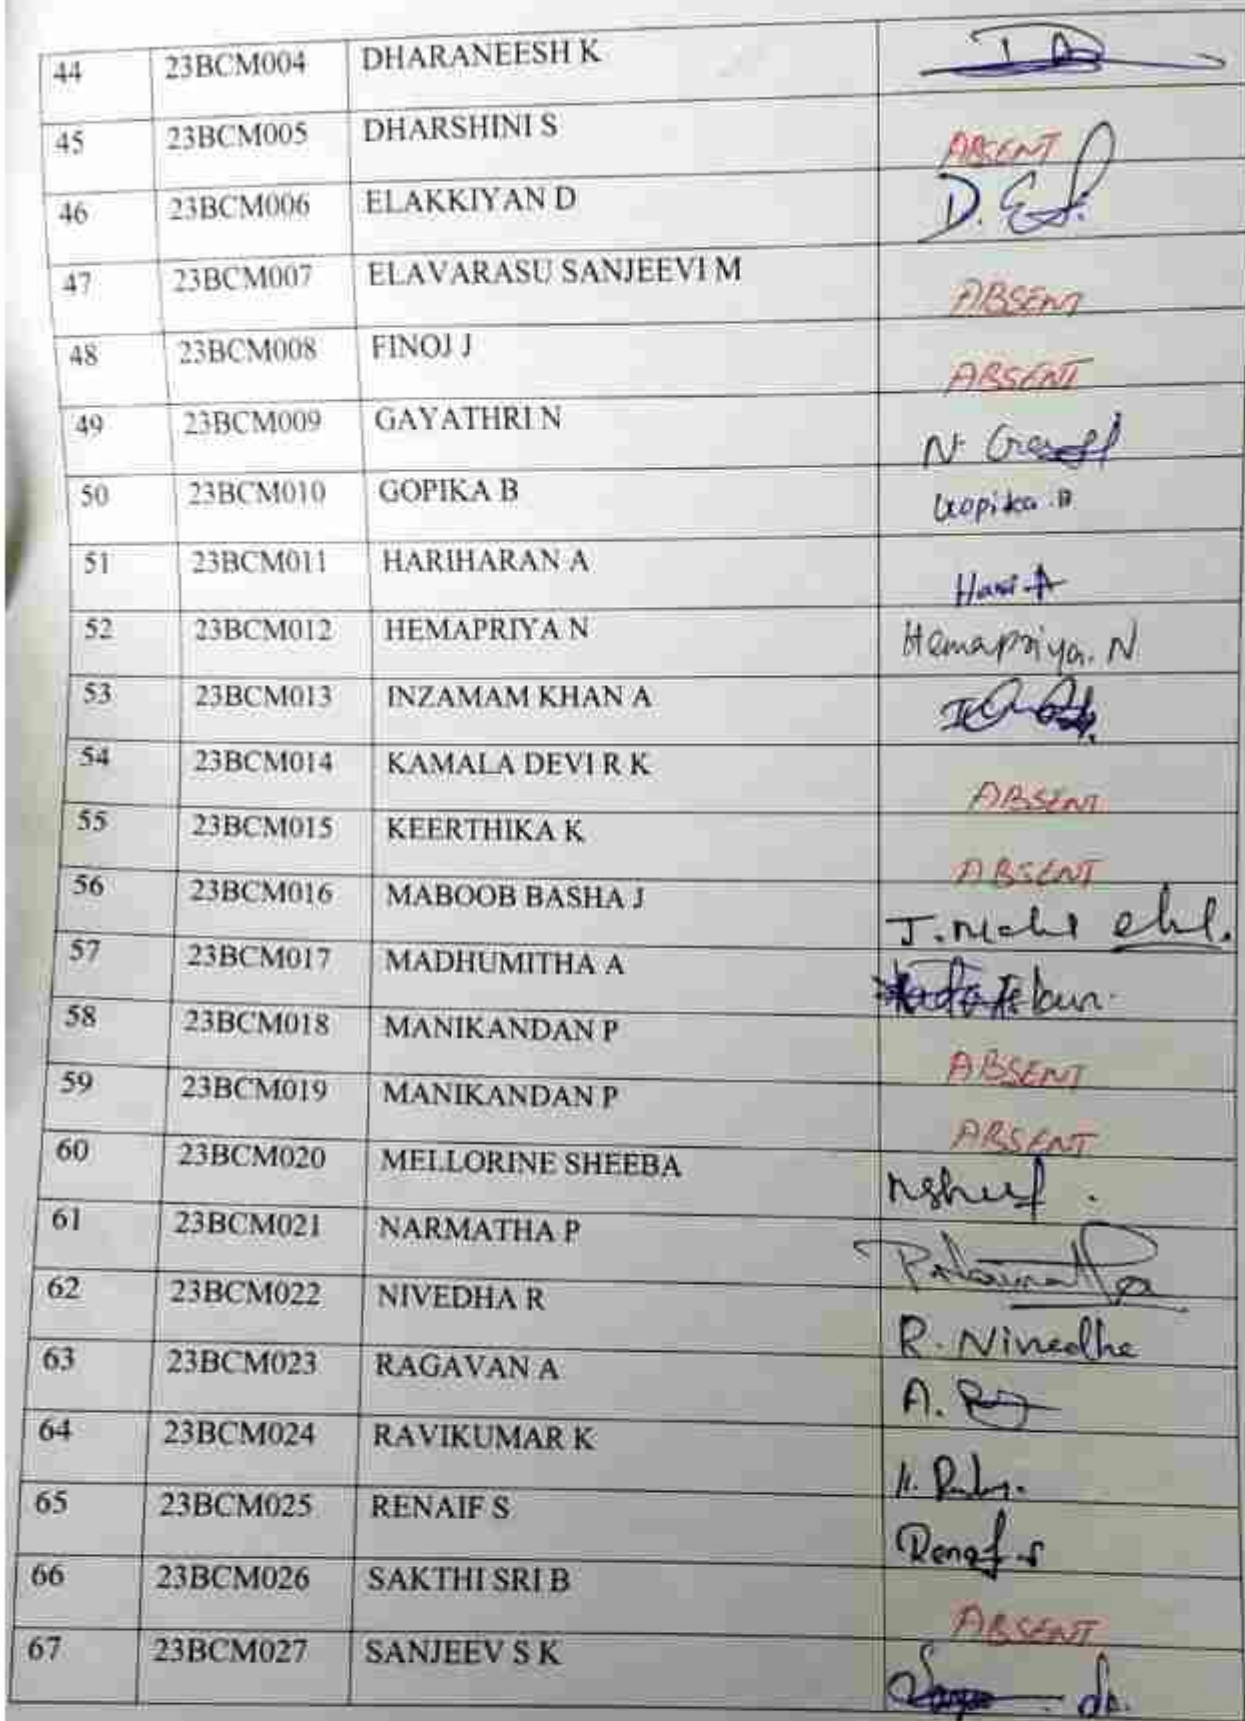 44 23BCM004 DHARANEESH K
45 23BCM005 DHARSHINI S ABSENT
46 23BCM006 ELAKKIYAN D D.
47 23BCM007 ELAVARASU SANJEEVI M ABSENT
48 23BCM008 FINOJ J ABSENT
49 23BCM009 GAYATHRI N N.
50 23BCM010 GOPIKA B Gopika .B
51 23BCM011 HARIHARAN A Hari A
52 23BCM012 HEMAPRIYA N Hemapriya. N
53 23BCM013 INZAMAM KHAN A
54 23BCM014 KAMALA DEVI R K ABSENT
55 23BCM015 KEERTHIKA K ABSENT
56 23BCM016 MABOOB BASHA J J.
57 23BCM017 MADHUMITHA A
58 23BCM018 MANIKANDAN P ABSENT
59 23BCM019 MANIKANDAN P ABSENT
60 23BCM020 MELLORINE SHEEBA
61 23BCM021 NARMATHA P
62 23BCM022 NIVEDHA R R. Nivedha
63 23BCM023 RAGAVAN A A.
64 23BCM024 RAVIKUMAR K
65 23BCM025 RENAIF S Renaf S
66 23BCM026 SAKTHI SRI B ABSENT
67 23BCM027 SANJEEV S K